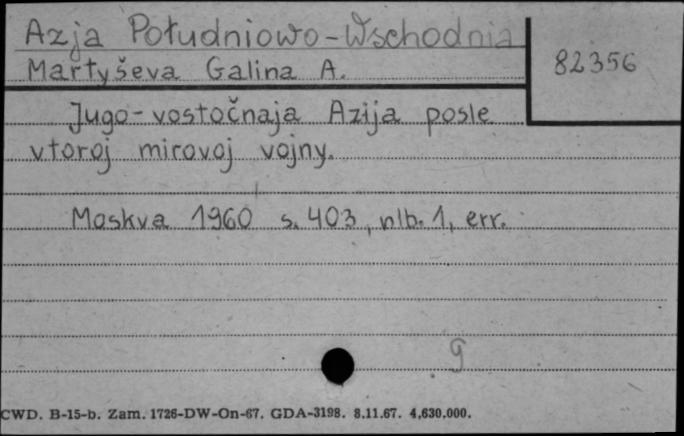 Azja Południowo-Wschodnia
82356
Martyševa Galina A.
Jugo-vostočnaja Azija posle
vtoroj mirovoj vojny.
Moskva 1960 s. 403, nlb. 1, err.
g
CWD. B-15-b. Zam. 1726-DW-On-67. GDA-3198. 8.11.67. 4,630.000.